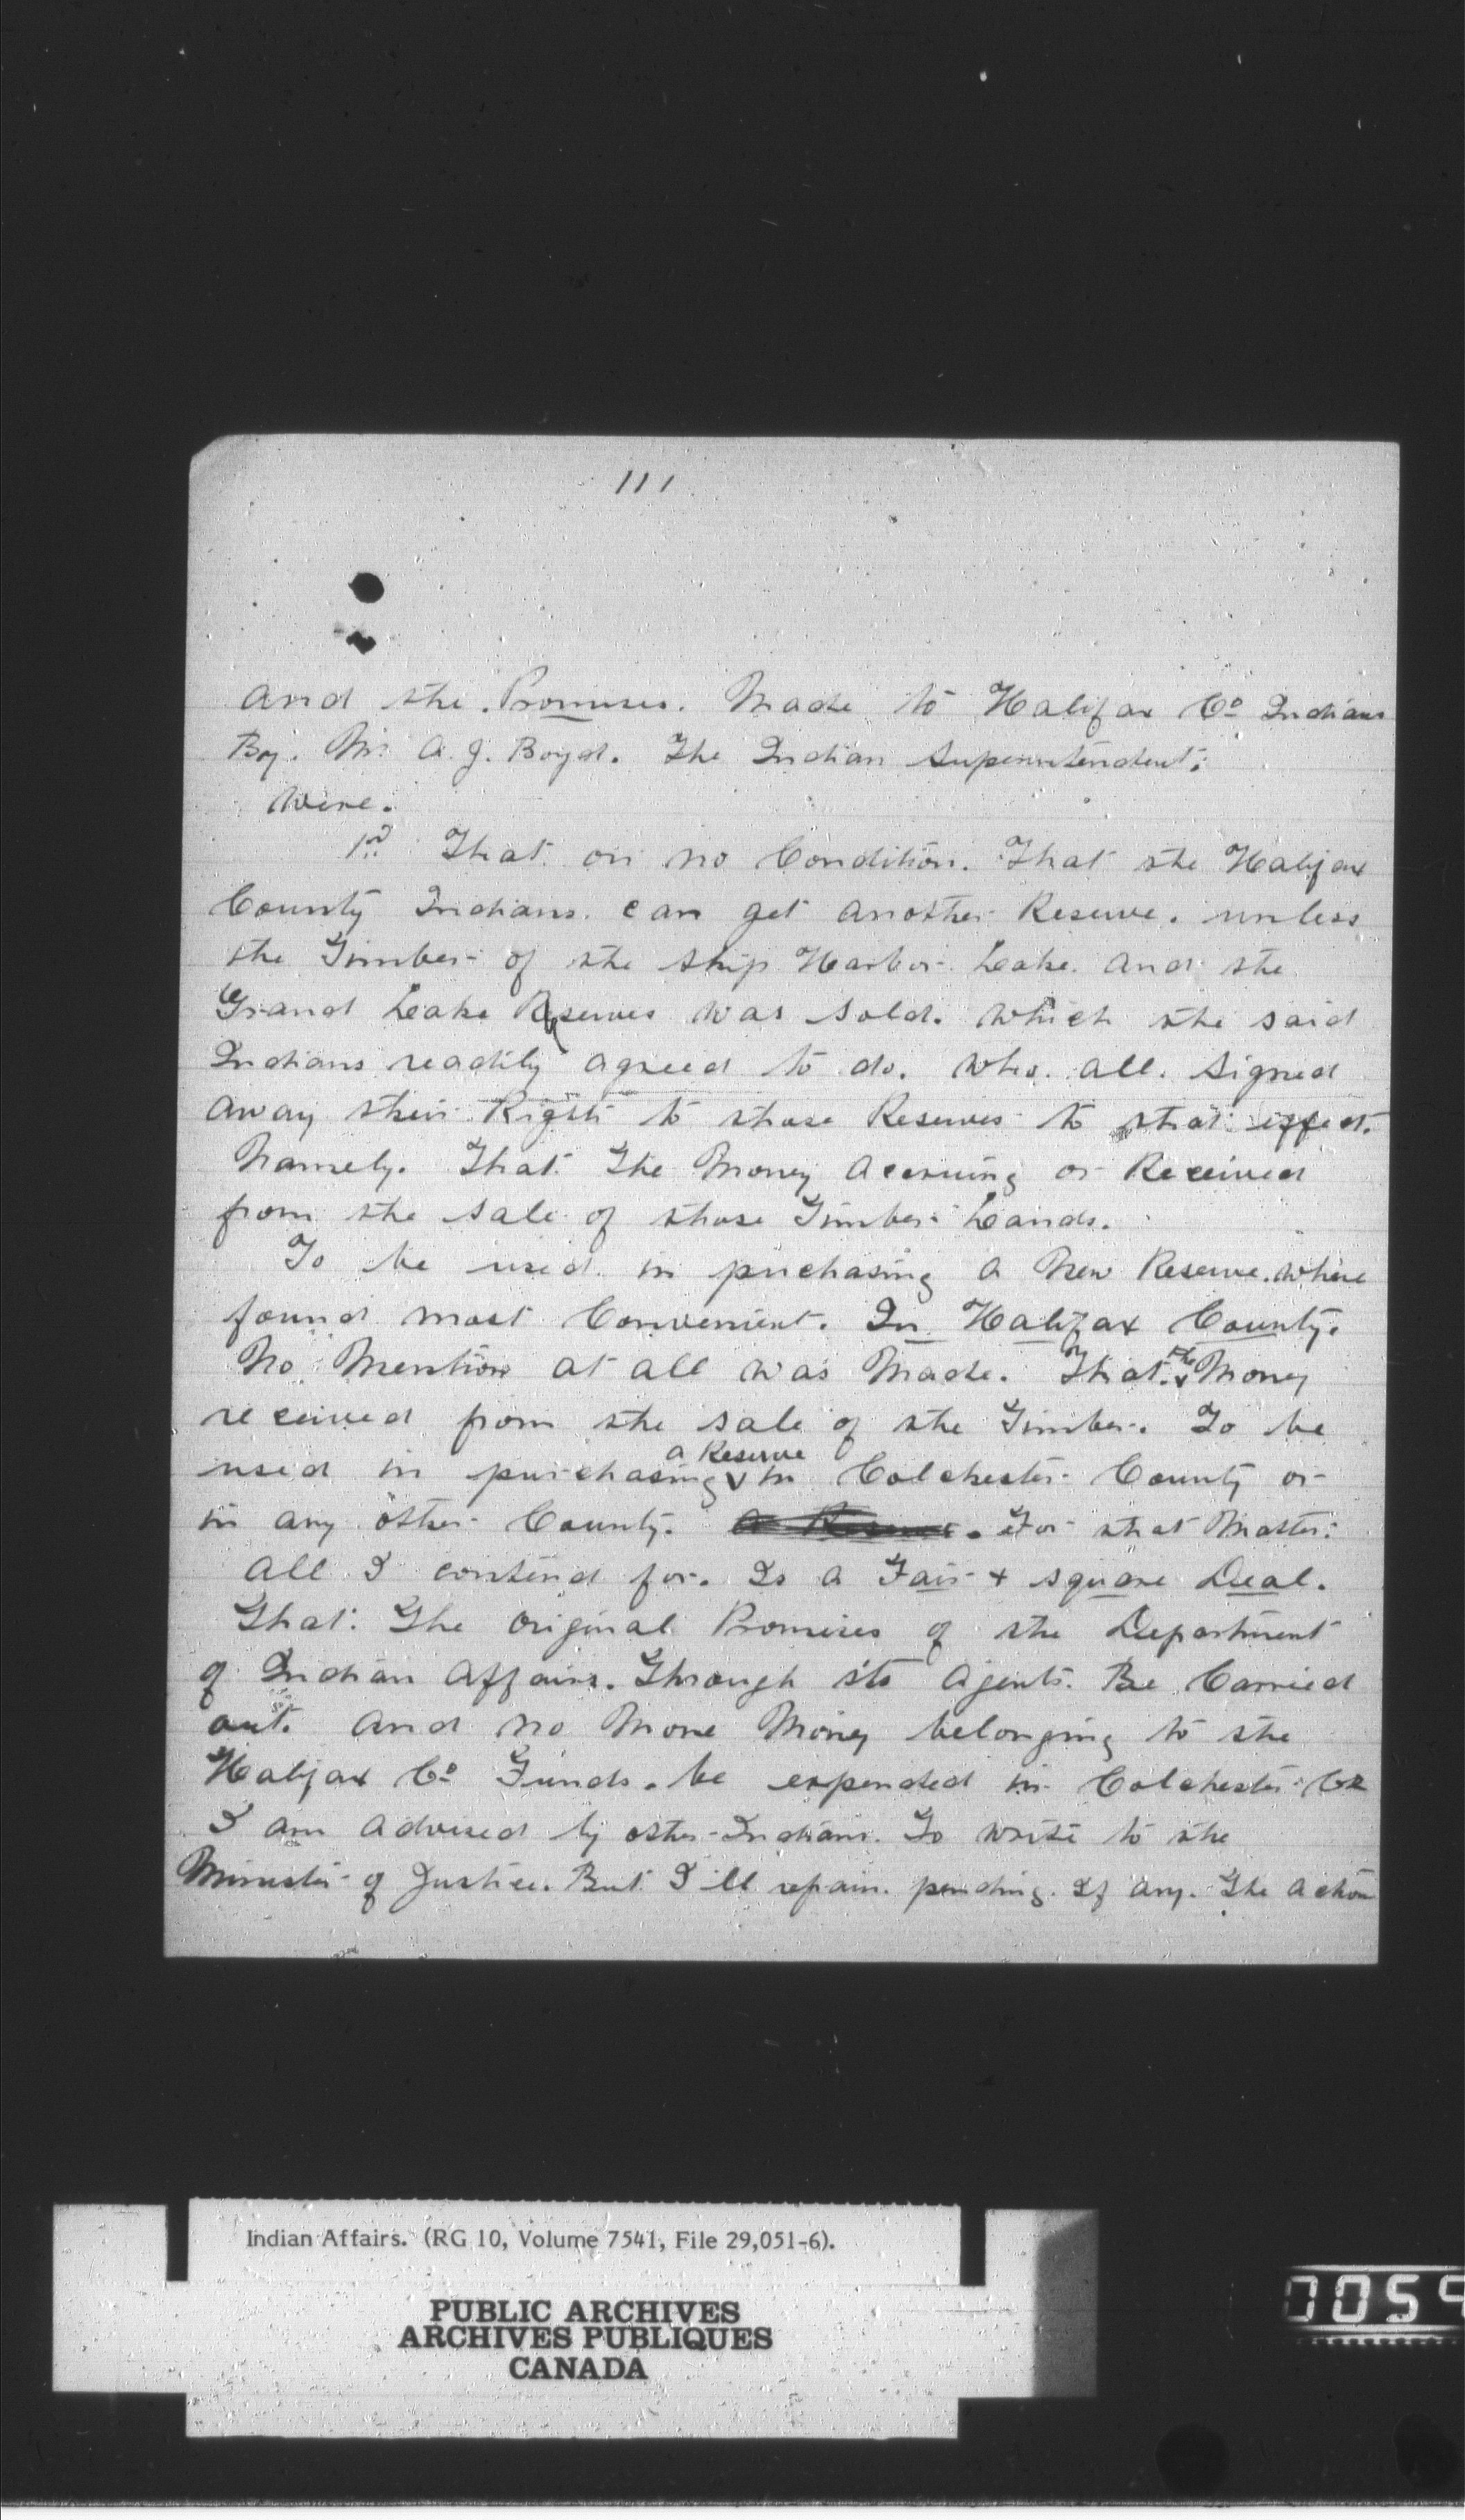 111
and the. Promises. Made to Halifax Co Indians
By. Mr. A. J. Boyd. The Indian Superintendent.
Were.
1st That on no Condition. That the Halifax
County Indians. can get another Reserve. unless
the Timber of the Ship Harbor Lake and the
Grand Lake Reserves was sold. Which the said
Indians readily agreed to do. Who. all. Signed
away their Rights to those Reserves to that effect.
Namely. That The Money Accruing or Received
from the sale of those Timber Lands.
To be used in puchasing a New Reserve. where
found most Convenient. In Halifax County.
No Mention at all was Made. That. the Money
received from the sale of the Timber. To be
used in purchasing a Reserve in Colchester County or
in any other County. a Reserve. For that Matter.
All I contend for. Is a Fair + square Deal.
That. The original Promises of the Department
of Indian Affairs. Through its Agents. Be Carried
out. And no More Money belonging to the
Halifax Co Funds. be expended in Colchester Co
I am advised by other Indians. To write to the
Minister of Justice. But I'll refrain. pending. If any. The Action
Indian Affairs. (RG 10, Volume 7541, File 29,051-6).
PUBLIC ARCHIVES
ARCHIVES PUBLIQUES
CANADA
0059